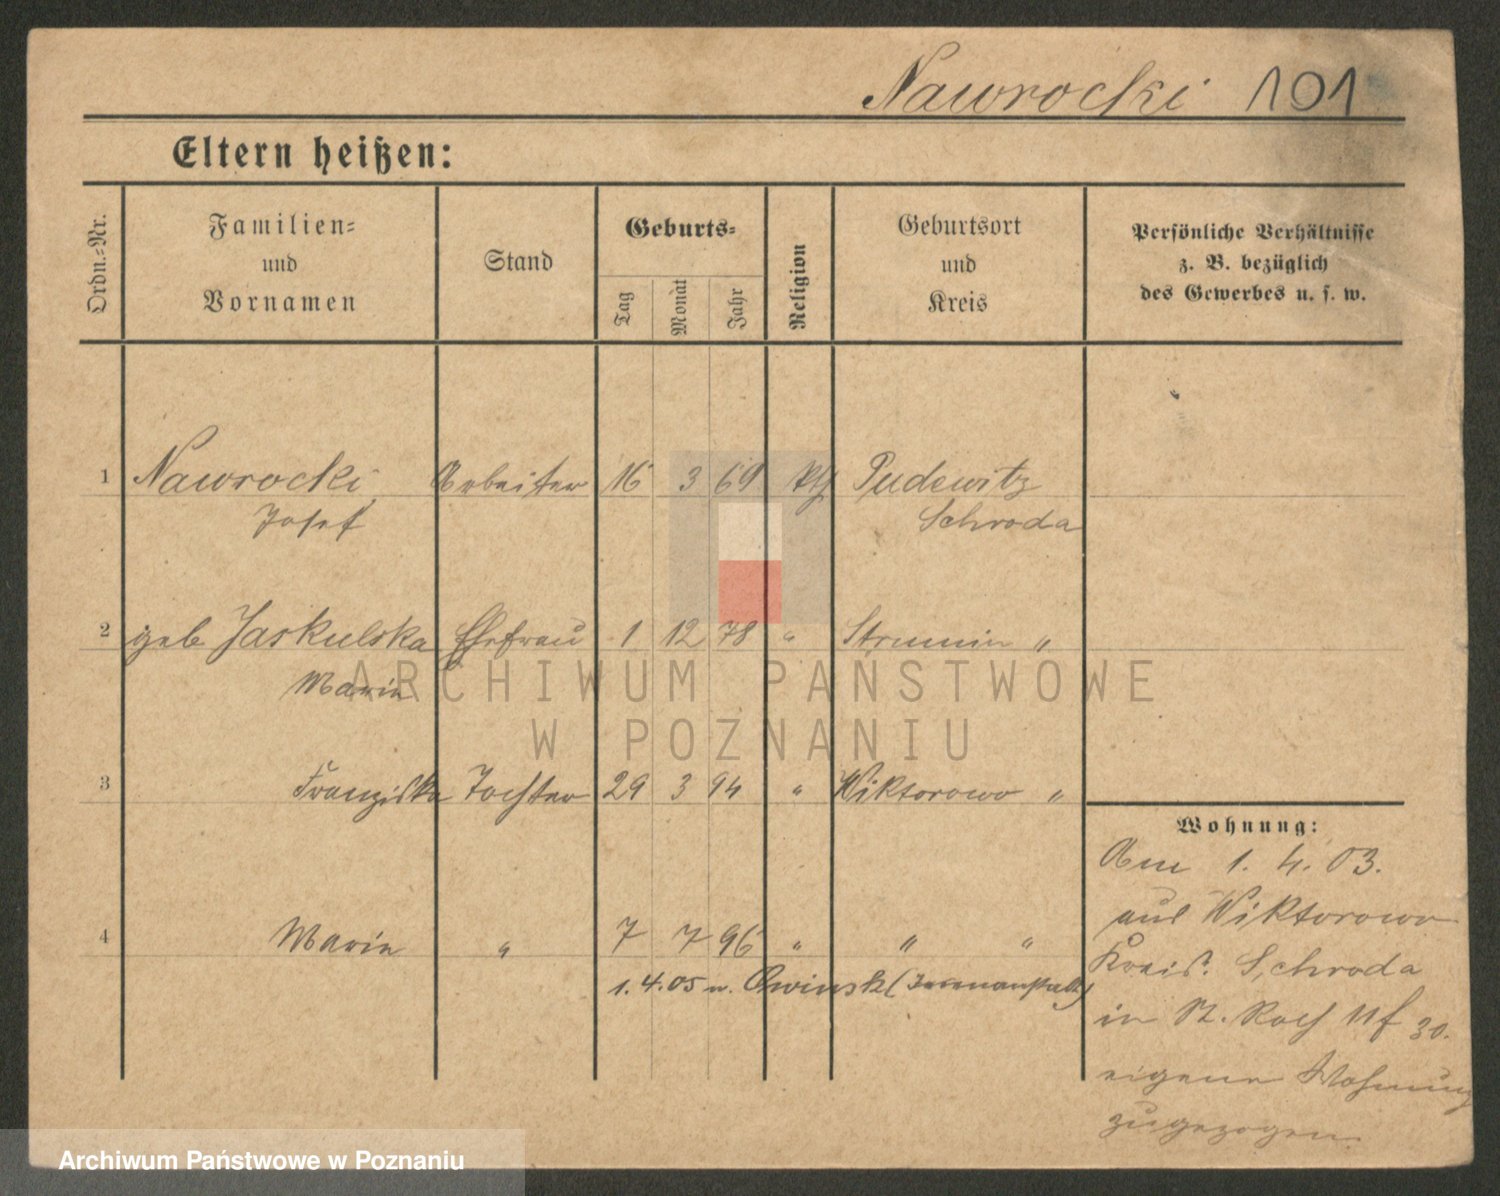 Nawrocki 101
Eltern heißen:
Ordn.-Nr.
Familien-
und
Vornamen
Stand
Geburts-
Tag
Monat
Jahr
Religion
Geburtsort
und
Kreis
Persönliche Verhältnisse
z. B. bezüglich
des Gewerbes u. s. w.
1 Nawrocki Arbeiter 16 3 69 kth Pudewitz
Josef Schroda
2 geb Jaskulska Ehefrau 1 12 78 " Strumin "
Maria
3 Franziska Tochter 29 3 94 " Wiktorowo "
4 Maria " 7 7 96 " " "
1.4.05 n. Owinsk (Irrenanstalt)
Wohnung:
Am 1. 4. 03.
aus Wiktorowo
Kreis. Schroda
in St. Roch 30.
eigene Wohnung
zugezogen.
ARCHIWUM PAŃSTWOWE
W POZNANIU
Archiwum Państwowe w Poznaniu